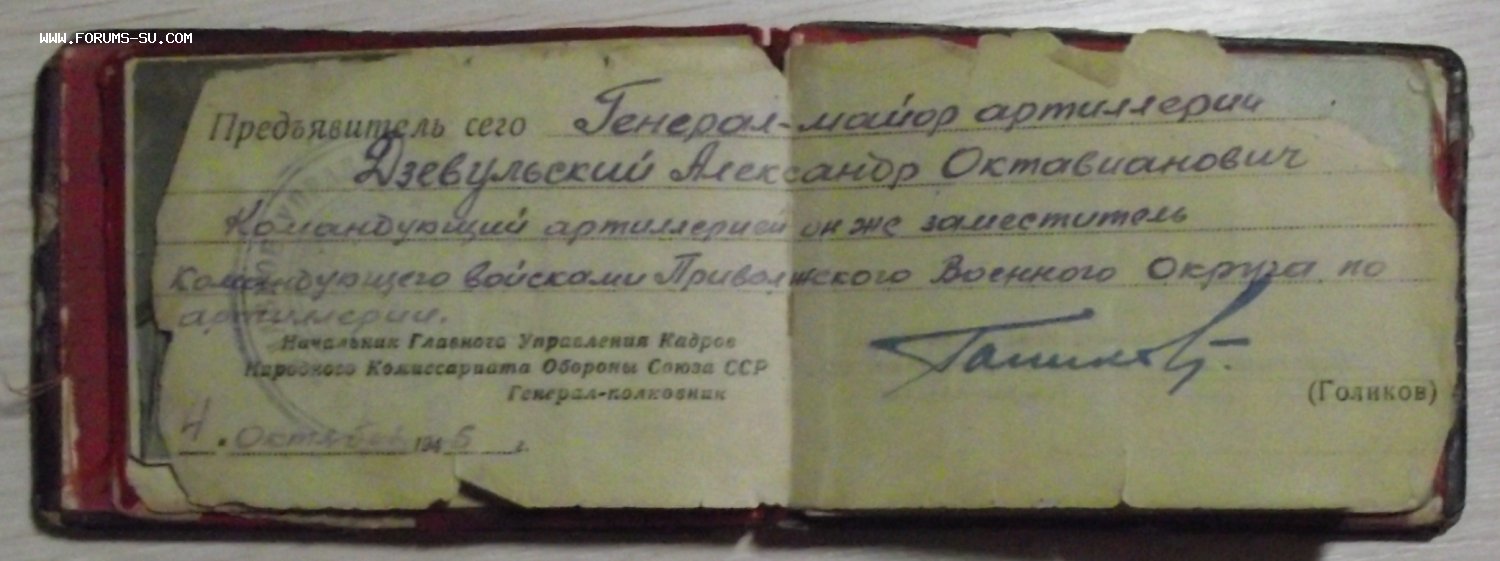 WWW.FORUMS-SU.COM
Предъявитель сего Генерал-майор артиллерии
Дзевульский Александр Октавианович
Командующий артиллерией он же заместитель
Командующего войсками Приволжского Военного Округа по
артиллерии.
Начальник Главного Управления Кадров
Народного Комиссариата Обороны Союза ССР
Генерал-полковник
Голиков
(Голиков)
4 " Октября 1945 г.